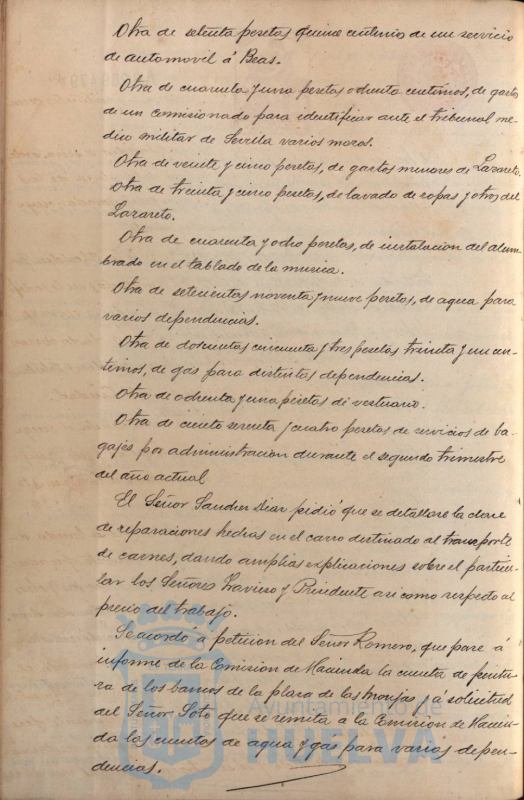 Otra de setenta pesetas quince centimos de un servicio
de automovil á Beas.
Otra de cuarenta y una pesetas ochenta centimos, de gastos
de un comisionado para identificar ante el tribunal me-
dico militar de Sevilla varios mozos.
Otra de veinte y cinco pesetas, de gastos menores de Lazareto.
Otra de treinta y cinco pesetas, de lavado de ropas y otros del
Lazareto.
Otra de cuarenta y ocho pesetas, de instalacion del alum-
brado en el tablado de la musica.
Otra de setecientas noventa y nueve pesetas, de agua para
varias dependencias.
Otra de doscientas cincuenta y tres pesetas treinta y un cen-
timos, de gas para distintas dependencias.
Otra de ochenta y una pesetas de vestuario.
Otra de ciento sesenta y cuatro pesetas de servicios de ba-
gajes por administracion durante el segundo trimestre
del año actual
El Señor Sanchez Diaz pidió que se detallase la clase
de reparaciones hechas en el carro destinado al transporte
de carnes, dando amplias explicaciones sobre el particu-
lar los Señores Travieso y Presidente asi como respecto al
precio del trabajo.
Se acordó a peticion del Señor Romero, que pase á
informe de la Comision de Hacienda la cuenta de pintu-
ra de los bancos de la plaza de las monjas, y á solicitud
del Señor Soto que se remita a la Comision de Hacien-
da las cuentas de agua y gas para varias depen-
dencias.
Ayuntamiento de
HUELVA